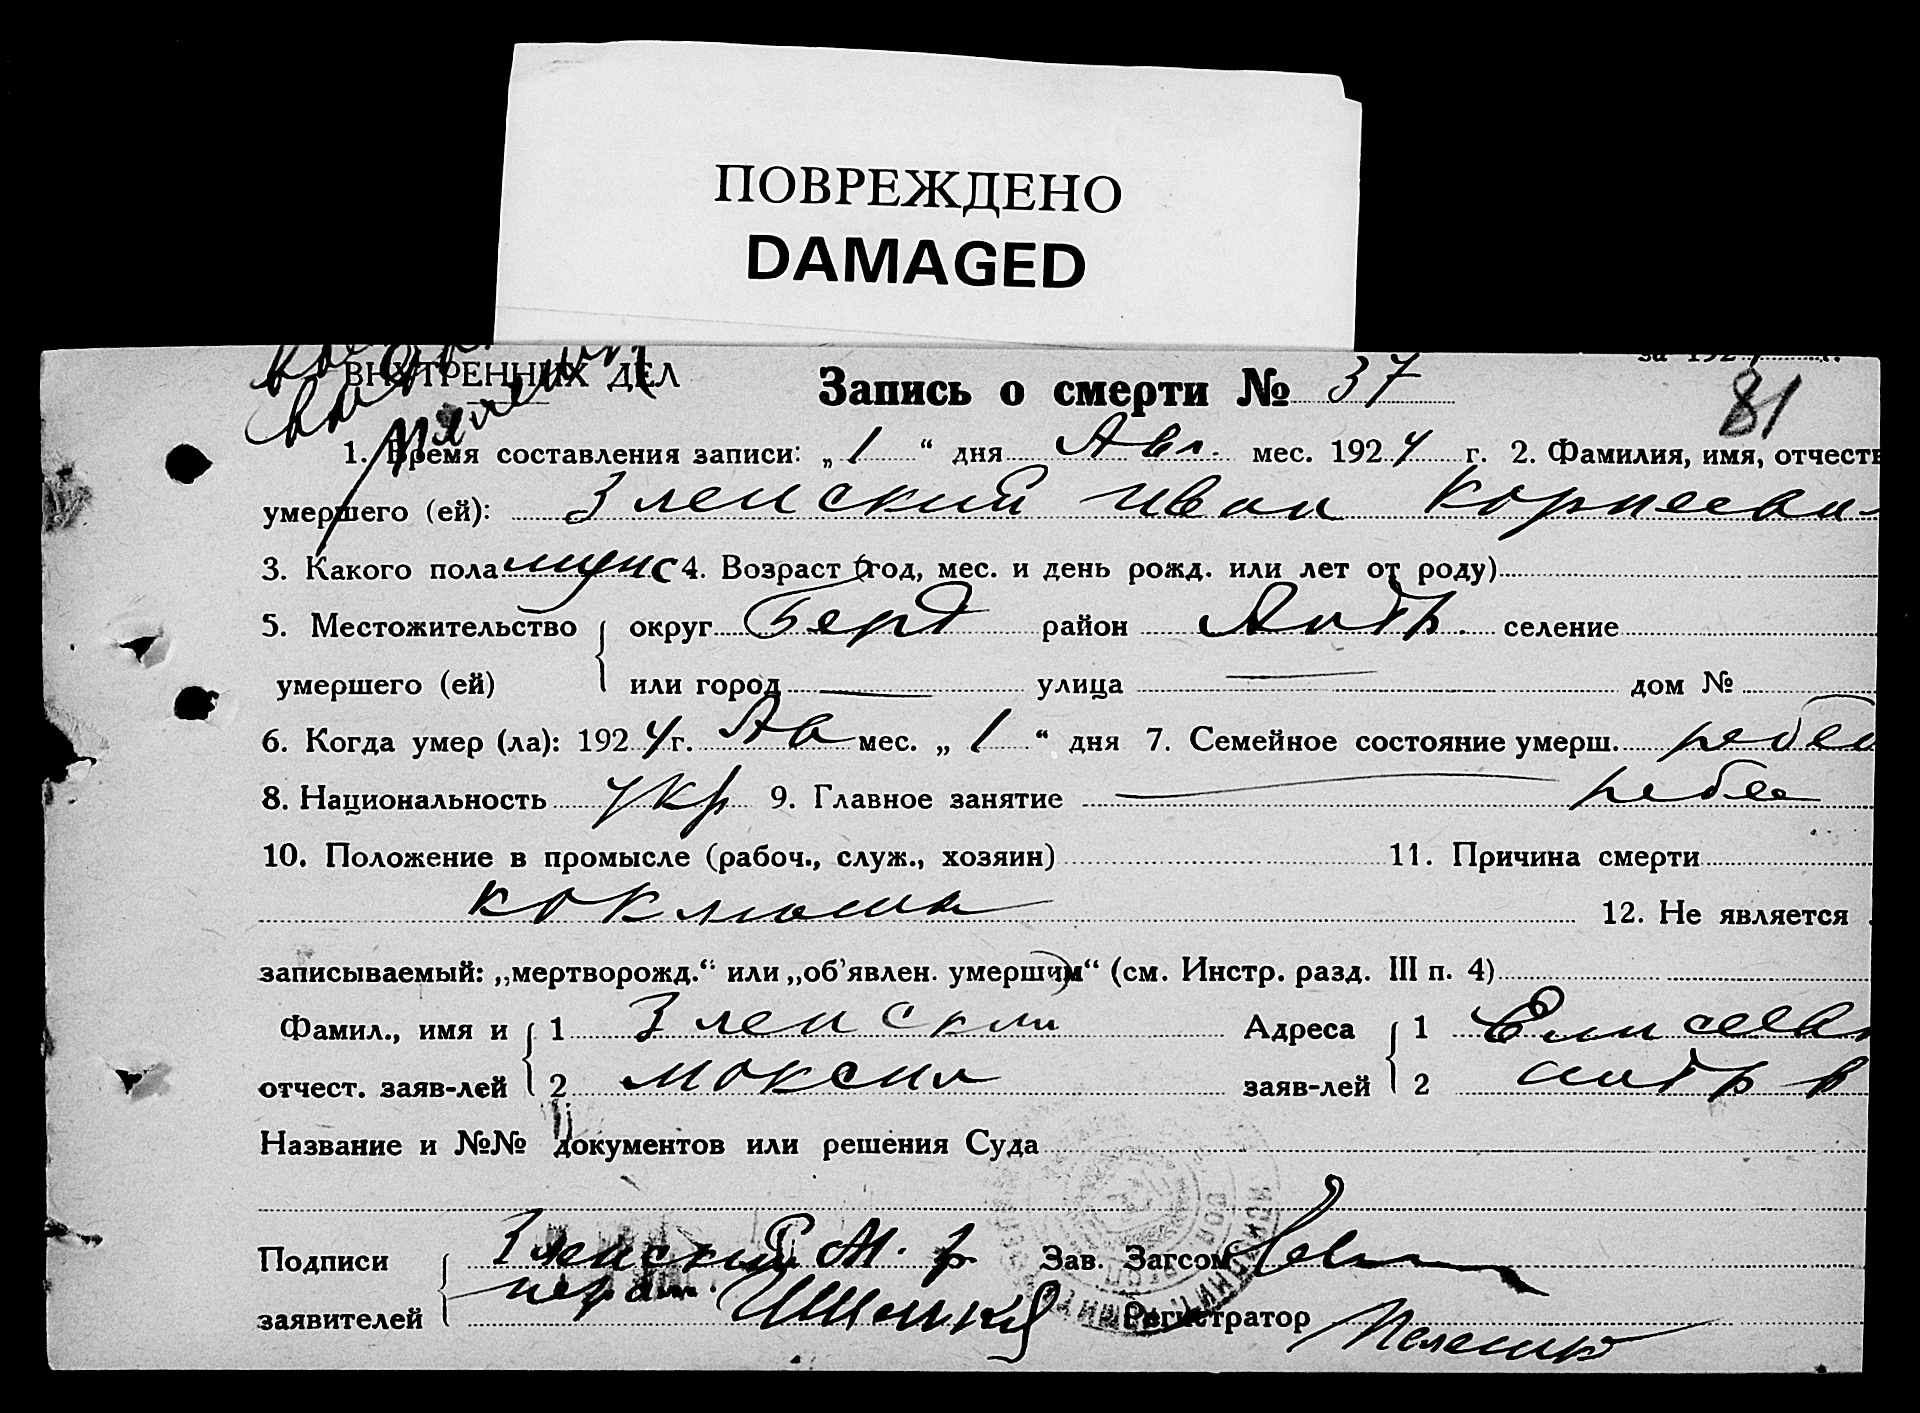 ПОВРЕЖДЕНО
DAMAGED
ВНУТРЕННИХ ДЕЛ
за 1924 г.
Запись о смерти № 37
81
1. Время составления записи: „1“ дня Авг. мес. 1924 г. 2. Фамилия, имя, отчеств
умершего (ей): Зленский Иван Корнееви
3. Какого пола мужс 4. Возраст (год, мес. и день рожд. или лет от роду)
5. Местожительство округ Берд район Андр. селение
умершего (ей) или город — улица — дом №
6. Когда умер (ла): 1924 г. Ав мес. „1“ дня 7. Семейное состояние умерш. ребе
8. Национальность укр 9. Главное занятие — ребе
10. Положение в промысле (рабоч., служ., хозяин) 11. Причина смерти
коклюша 12. Не является
записываемый: „мертворожд.“ или „об'явлен. умершим“ (см. Инстр. разд. III п. 4)
Фамил., имя и 1 Зленский Адреса 1 Елисеев
отчест. заяв-лей 2 Максим заяв-лей 2 андр р
Название и №№ документов или решения Суда
Подписи Зленский М. Зав. Загсом
заявителей Регистратор